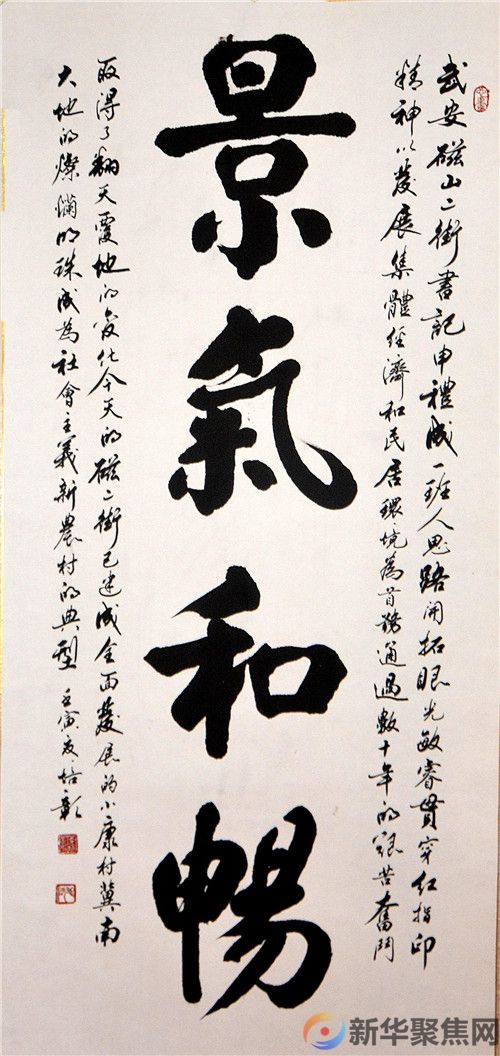 景氣和暢
武安磁山二街書記申禮成一班人思路開拓眼光敏睿貫穿紅指印
精神以發展集體經濟和民居環境為首務通過數十年的艱苦奮鬥
取得了翻天覆地的變化今天的磁二街已建成全面發展的小康村冀南
大地的燦爛明珠成為社會主義新農村的典型 壬寅夏培彰
新华聚焦网